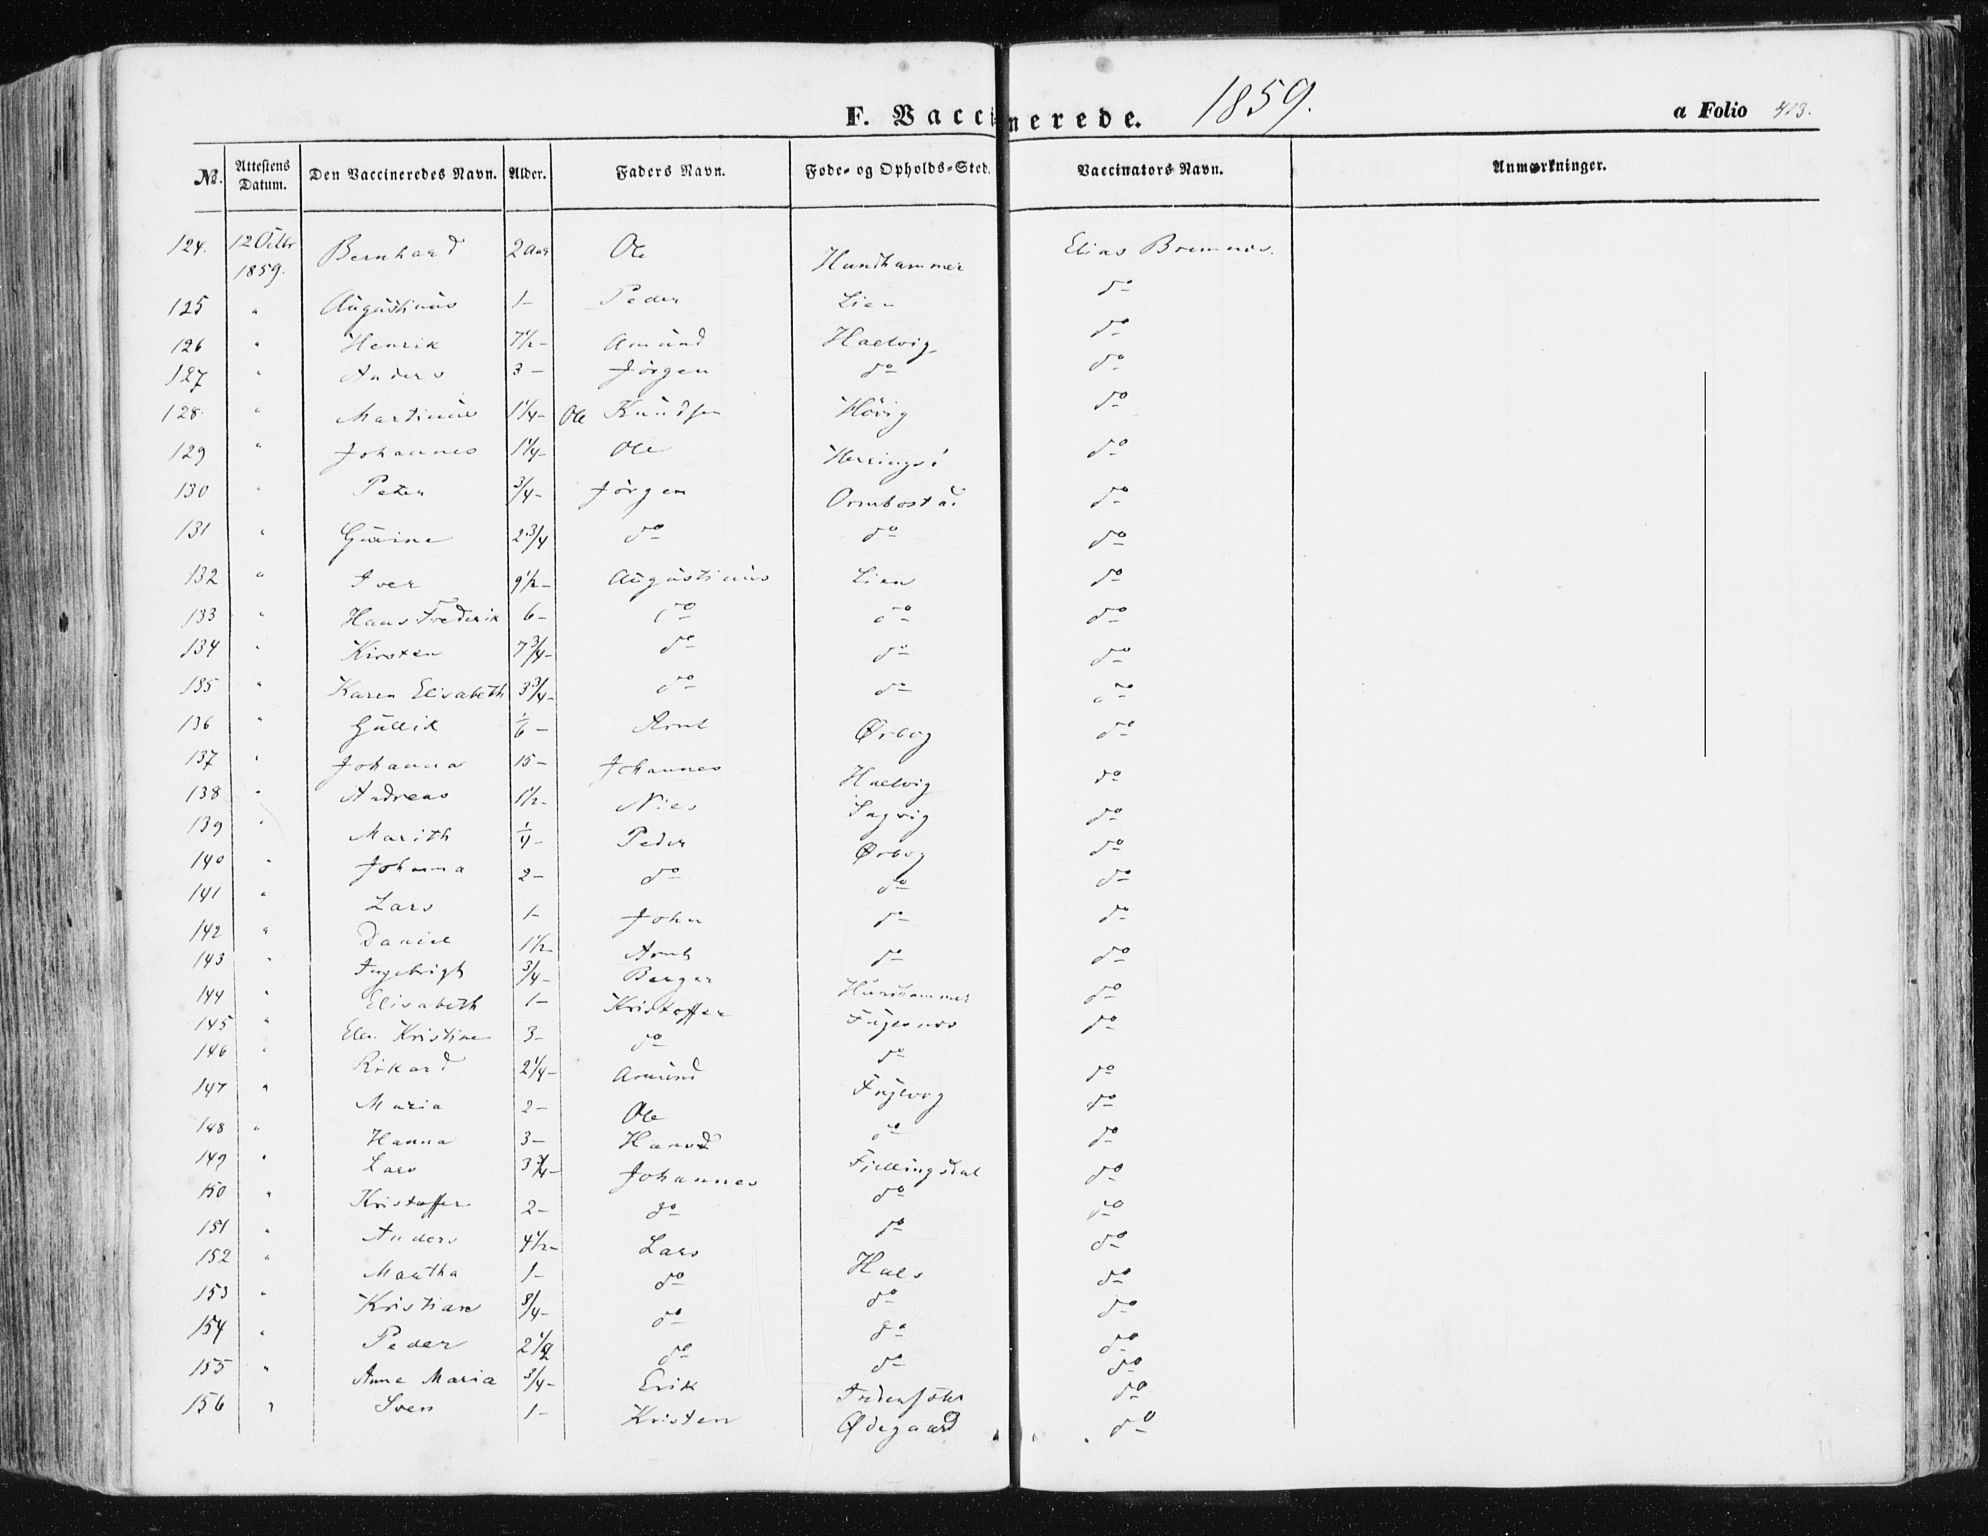 F. Vaccinerede. 1859. a Folio 413.
No. Attestens Datum. Den Vaccineredes Navn. Alder. Faders Navn. Føde- og Opholds-Sted. Vaccinators Navn. Anmærkninger.
124. 12 Octbr 1859. Bernhard 2 Aar Ole Hundhammer Elias Bremnes.
125 " Augustinus 1 - Peder Lien do
126 " Henrik 7 1/2 - Amund Halvig do
127 " Anders 3 - Jörgen do do
128. " Martinus 1 1/4 - Ole Knudsen Hövig do
129 " Johannes 1 1/4 - Ole do
130 " Peter 3/4 - Jörgen Ormbostad do
131 " Gurine 2 3/4 do do do
132 " Iver 9 1/2 - Augustinus Lien do
133 " Hans Frederik 6 - do do do
134 " Kirsten 7 3/4 - do do do
135 " Karen Elisabeth 3 3/4 - do do do
136 " Gullik 1/6 - Arnt Ørbog do
137 " Johanna 15 - Johannes Halvig do
138 " Andreas 1 1/2 - Nils Sagvig do
139 " Marith 1/4 - Peder Ørbog do
140 " Johanna 2 - do do do
141 " Lars 1 - John do do
142 " Daniel 1 1/2 - Arnt do do
143 " Ingebrigt 3/4 - Berger Hundhammer do
144 " Elisabeth 1 - Kristoffer do
145 " Elen Kristine 3 - do do do
146 " Rikard 2 1/4 - Amund do
147 " Maria 2 - Ole do do
148 " Hanna 3 - Hans Fjellingsdal do
149 " Lars 3 3/4 - Johannes do do
150 " Kristoffer 2 - do do do
151 " Anders 4 1/2 - Lars Hals do
152 " Martha 1 - do do do
153 " Kristian 3/4 - do do do
154 " Peder 2 1/2 do do do
155 " Anne Maria 3/4 - Erik do
156 " Sven 1 - Kristen Ødegaard do